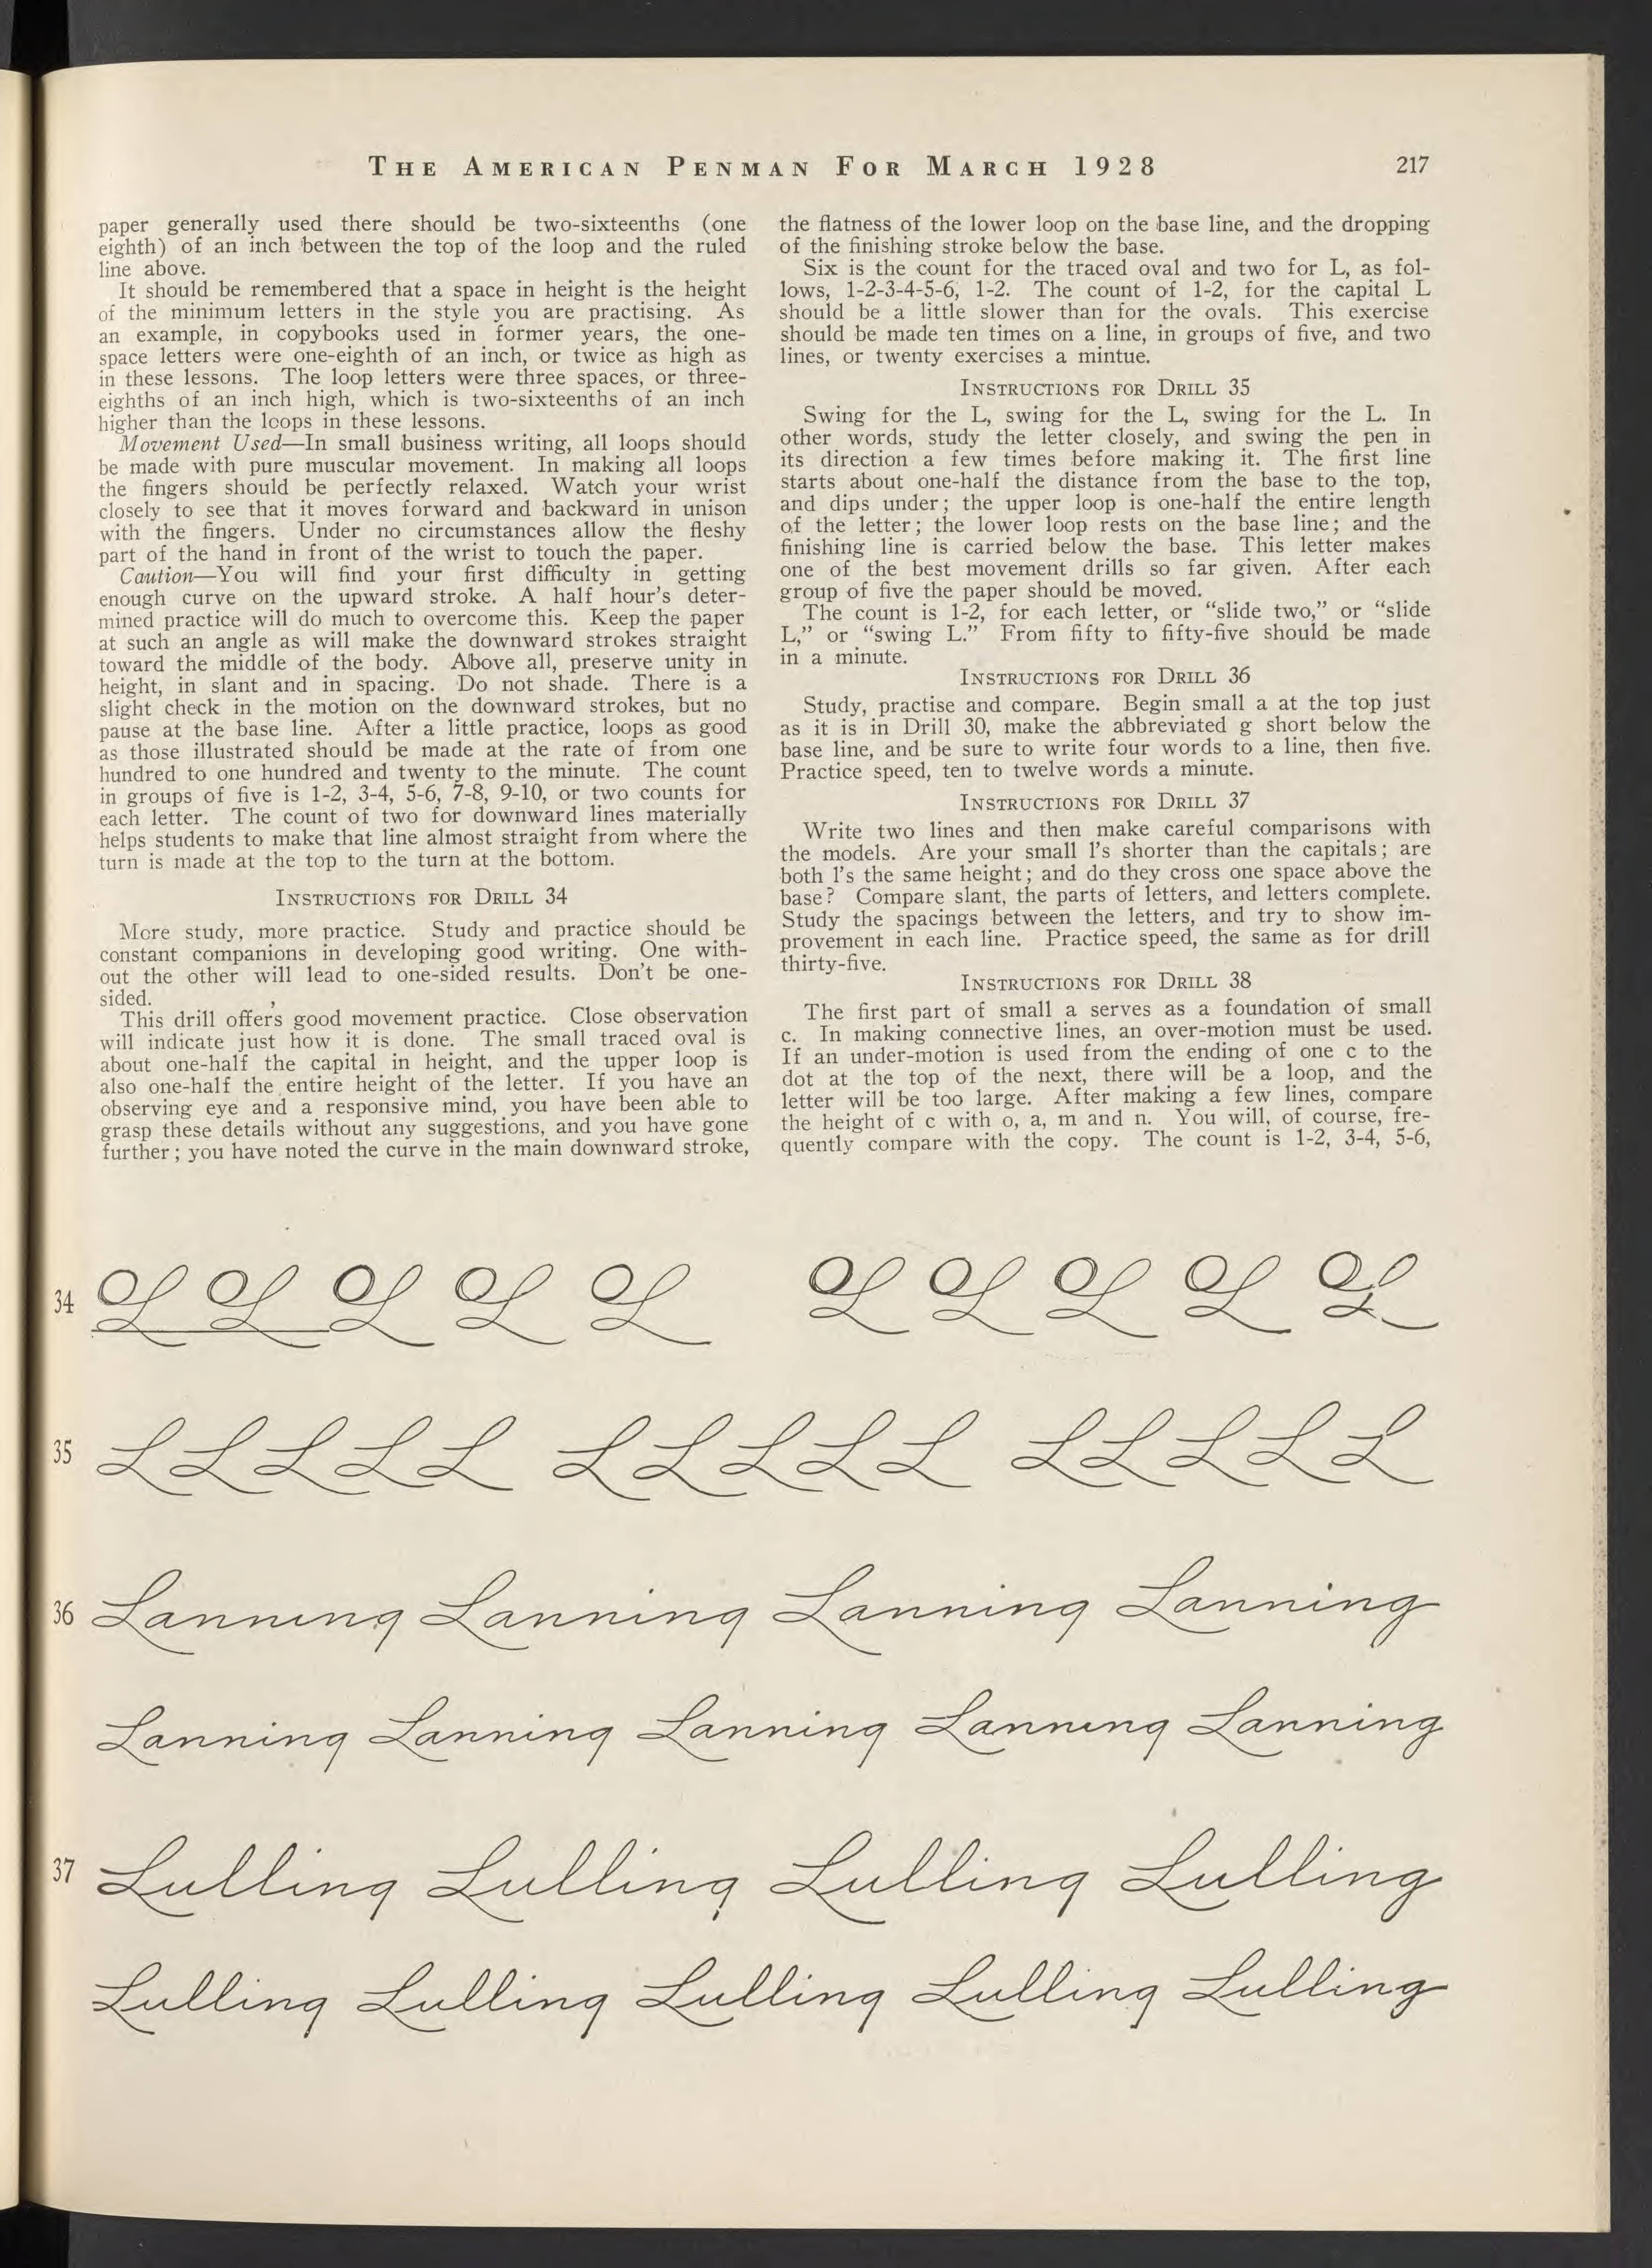 THE AMERICAN PENMAN FOR MARCH 1928 217
paper generally used there should be two-sixteenths (one
eighth) of an inch between the top of the loop and the ruled
line above.
It should be remembered that a space in height is the height
of the minimum letters in the style you are practising. As
an example, in copybooks used in former years, the one-
space letters were one-eighth of an inch, or twice as high as
in these lessons. The loop letters were three spaces, or three-
eighths of an inch high, which is two-sixteenths of an inch
higher than the loops in these lessons.
Movement Used—In small business writing, all loops should
be made with pure muscular movement. In making all loops
the fingers should be perfectly relaxed. Watch your wrist
closely to see that it moves forward and backward in unison
with the fingers. Under no circumstances allow the fleshy
part of the hand in front of the wrist to touch the paper.
Caution—You will find your first difficulty in getting
enough curve on the upward stroke. A half hour's deter-
mined practice will do much to overcome this. Keep the paper
at such an angle as will make the downward strokes straight
toward the middle of the body. Above all, preserve unity in
height, in slant and in spacing. Do not shade. There is a
slight check in the motion on the downward strokes, but no
pause at the base line. After a little practice, loops as good
as those illustrated should be made at the rate of from one
hundred to one hundred and twenty to the minute. The count
in groups of five is 1-2, 3-4, 5-6, 7-8, 9-10, or two counts for
each letter. The count of two for downward lines materially
helps students to make that line almost straight from where the
turn is made at the top to the turn at the bottom.
INSTRUCTIONS FOR DRILL 34
More study, more practice. Study and practice should be
constant companions in developing good writing. One with-
out the other will lead to one-sided results. Don't be one-
sided.
This drill offers good movement practice. Close observation
will indicate just how it is done. The small traced oval is
about one-half the capital in height, and the upper loop is
also one-half the entire height of the letter. If you have an
observing eye and a responsive mind, you have been able to
grasp these details without any suggestions, and you have gone
further; you have noted the curve in the main downward stroke,
the flatness of the lower loop on the base line, and the dropping
of the finishing stroke below the base.
Six is the count for the traced oval and two for L, as fol-
lows, 1-2-3-4-5-6, 1-2. The count of 1-2, for the capital L
should be a little slower than for the ovals. This exercise
should be made ten times on a line, in groups of five, and two
lines, or twenty exercises a mintue.
INSTRUCTIONS FOR DRILL 35
Swing for the L, swing for the L, swing for the L. In
other words, study the letter closely, and swing the pen in
its direction a few times before making it. The first line
starts about one-half the distance from the base to the top,
and dips under; the upper loop is one-half the entire length
of the letter; the lower loop rests on the base line; and the
finishing line is carried below the base. This letter makes
one of the best movement drills so far given. After each
group of five the paper should be moved.
The count is 1-2, for each letter, or “slide two,” or “slide
L,” or “swing L.” From fifty to fifty-five should be made
in a minute.
INSTRUCTIONS FOR DRILL 36
Study, practise and compare. Begin small a at the top just
as it is in Drill 30, make the abbreviated g short below the
base line, and be sure to write four words to a line, then five.
Practice speed, ten to twelve words a minute.
INSTRUCTIONS FOR DRILL 37
Write two lines and then make careful comparisons with
the models. Are your small l's shorter than the capitals; are
both l's the same height; and do they cross one space above the
base? Compare slant, the parts of letters, and letters complete.
Study the spacings between the letters, and try to show im-
provement in each line. Practice speed, the same as for drill
thirty-five.
INSTRUCTIONS FOR DRILL 38
The first part of small a serves as a foundation of small
c. In making connective lines, an over-motion must be used.
If an under-motion is used from the ending of one c to the
dot at the top of the next, there will be a loop, and the
letter will be too large. After making a few lines, compare
the height of c with o, a, m and n. You will, of course, fre-
quently compare with the copy. The count is 1-2, 3-4, 5-6,
34 L L L L L L L L L L
35 L L L L L L L L L L L L L L L
36 Lanning Lanning Lanning Lanning
Lanning Lanning Lanning Lanning Lanning
37 Lulling Lulling Lulling Lulling
Lulling Lulling Lulling Lulling Lulling